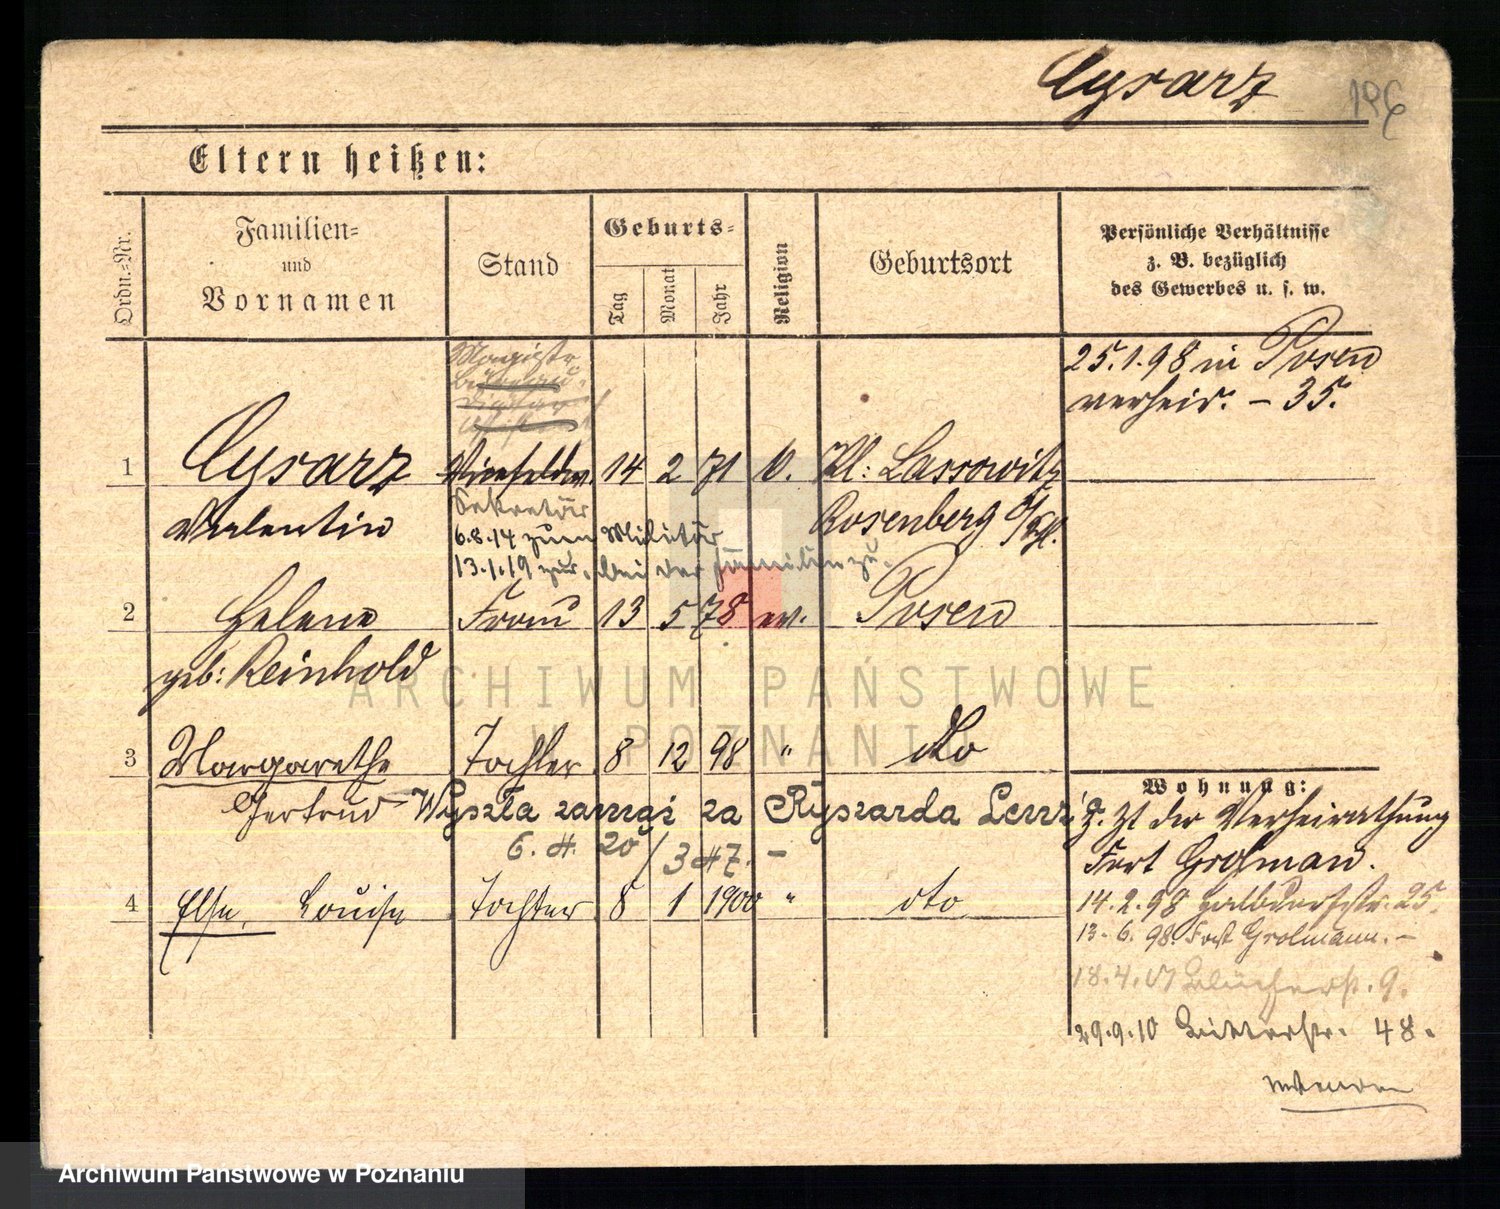 Cysarz
196
Eltern heißen:
Ordn.-Nr.
Familien-
und
Vornamen
Stand
Geburts-
Tag
Monat
Jahr
Religion
Geburtsort
Persönliche Verhältnisse
z. B. bezüglich
des Gewerbes u. s. w.
25.1.98 in Posen
verheir. – 35.
Magistr
1 Cysarz Vizefeldw. 14 2 71 Kl: Lassowitz
Valentin Sekretär Rosenberg o/Schl.
6.8.14 zum Militär
13.1.19 zur. bei der Familie zu.
2 Helene Frau 13 5 78 ev. Posen
geb: Reinhold
3 Margarethe Tochter 8 12 98 " dto
Gertrud Wyszła zamąż za Ryszarda Lenz'a
6. 4. 20 / 347. –
4 Else Louise Tochter 8 1 1900 " dto
Wohnung:
z. Zt der Verheirathung
Fort Grolman.
14.2.98 Halbdorfstr. 25.
13.6.98. Fort Grolmann. –
18.4.01 Blücherstr. 9.
29.9.10 Ritterstr. 48.
ARCHIWUM PAŃSTWOWE
W POZNANIU
Archiwum Państwowe w Poznaniu